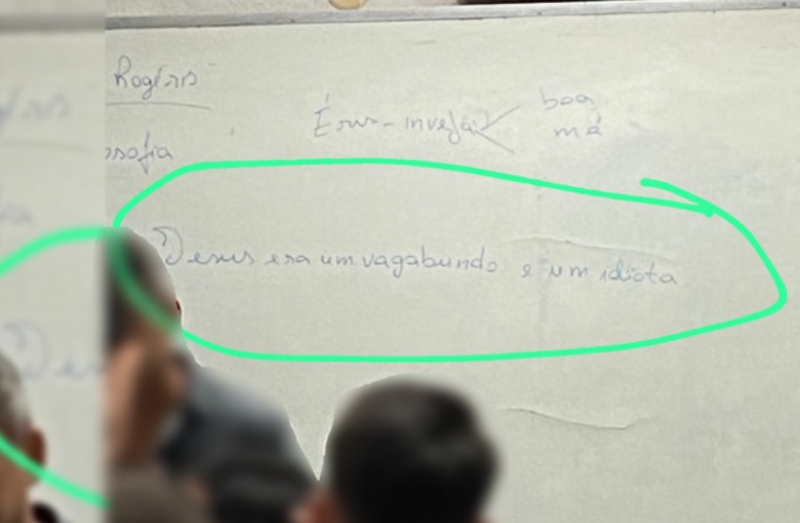 Rogério
É rus- inveja boa
má
osofia
Jesus era um vagabundo e um idiota